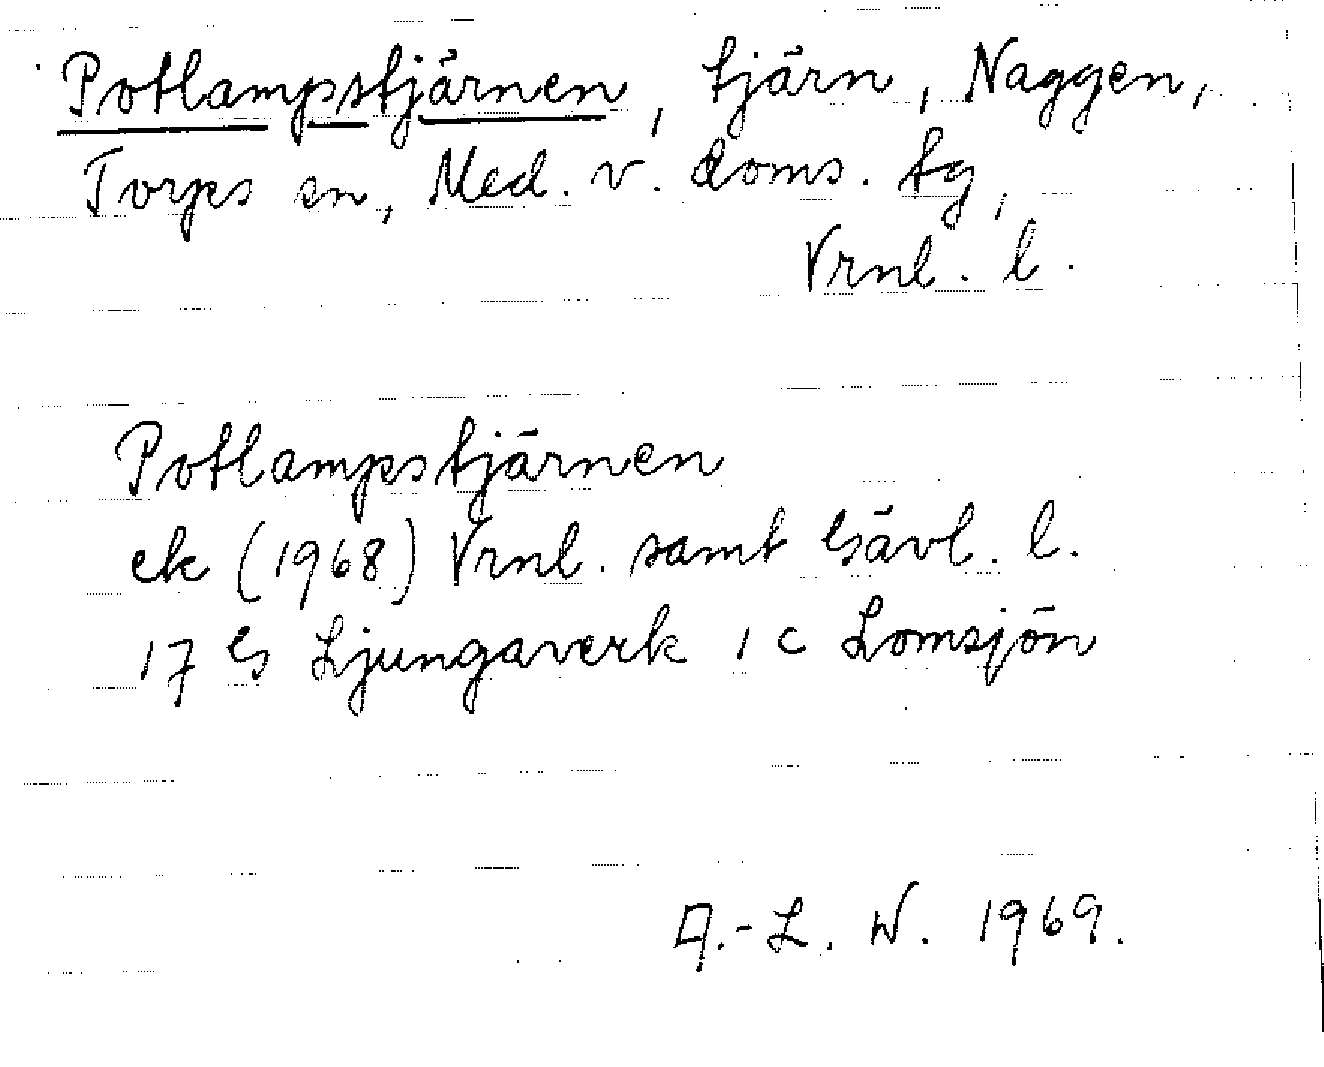 Potlampstjärnen, tjärn, Naggen,
Torps sn, Med. v. doms. tg,
Vrnl. l.
Potlampstjärnen
ek (1968) Vrnl. samt Gävl. l.
17 G Ljungaverk 1 c Lomsjön
A.-L. W. 1969.